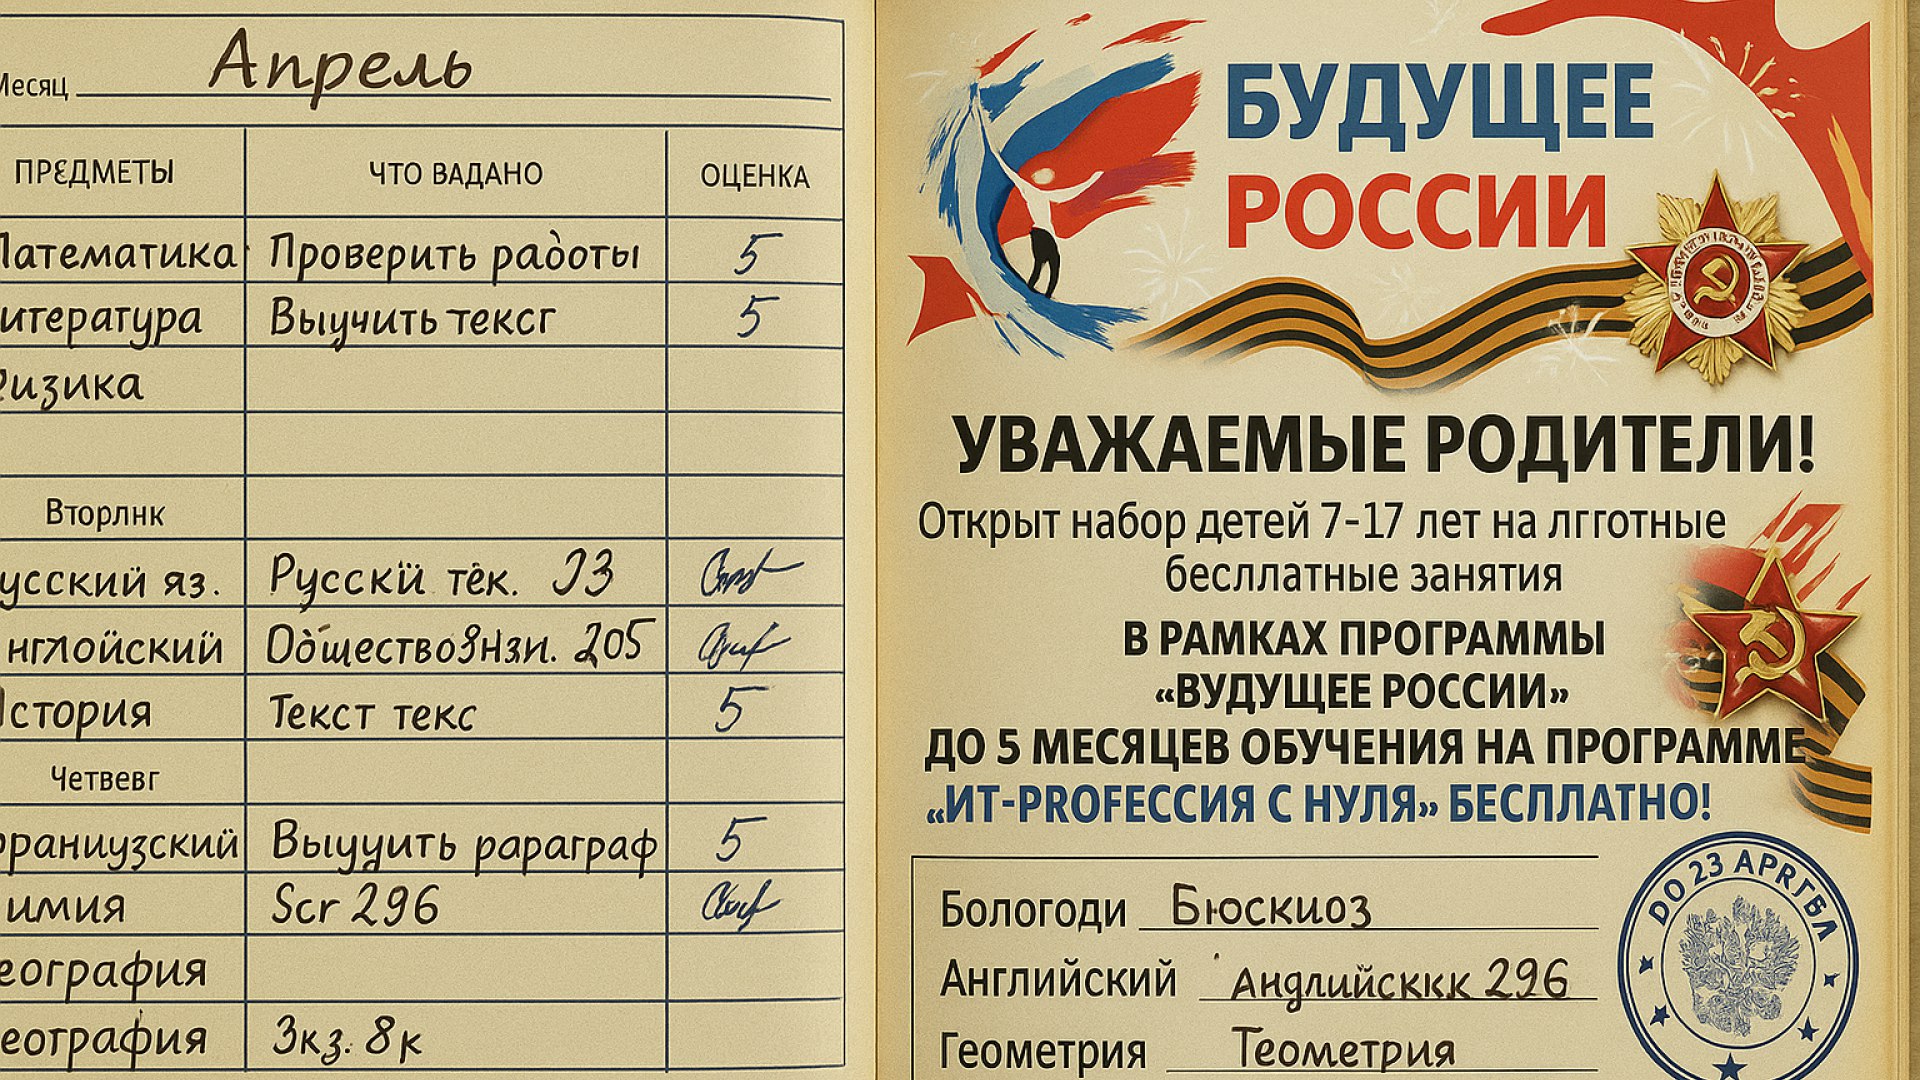 Месяц Апрель
ПРЕДМЕТЫ ЧТО ВАДАНО ОЦЕНКА
Математика Проверить работы 5
итература Выучить тексг 5
Физика
Вторлнк
усский яз. Русскй тёк. 93
нглойский Обществознзи. 205
История Текст текс 5
Четвевг
франиузский Выууить рараграф 5
имия Scr 296
еография
еография Зкз. 8к
БУДУЩЕЕ
РОССИИ
УВАЖАЕМЫЕ РОДИТЕЛИ!
Открыт набор детей 7-17 лет на лгготные
бесллатные занятия
В РАМКАХ ПРОГРАММЫ
«ВУДУЩЕЕ РОССИИ»
ДО 5 МЕСЯЦЕВ ОБУЧЕНИЯ НА ПРОГРАММЕ
«ИТ-PROFЕССИЯ С НУЛЯ» БЕСЛЛАТНО!
Бологоди Бюскиоз
Английский Андлийсккк 296
Геометрия Теометрия
DO 23 АРRГБЛ